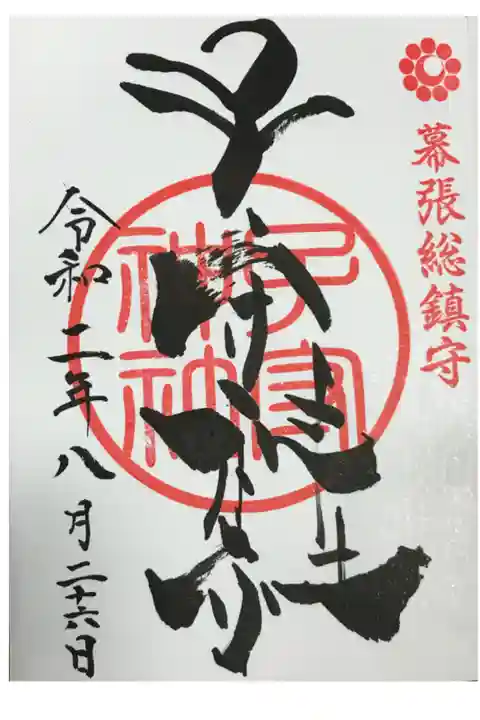 幕張総鎮守
子守神社
子守神社
令和二年八月二十六日